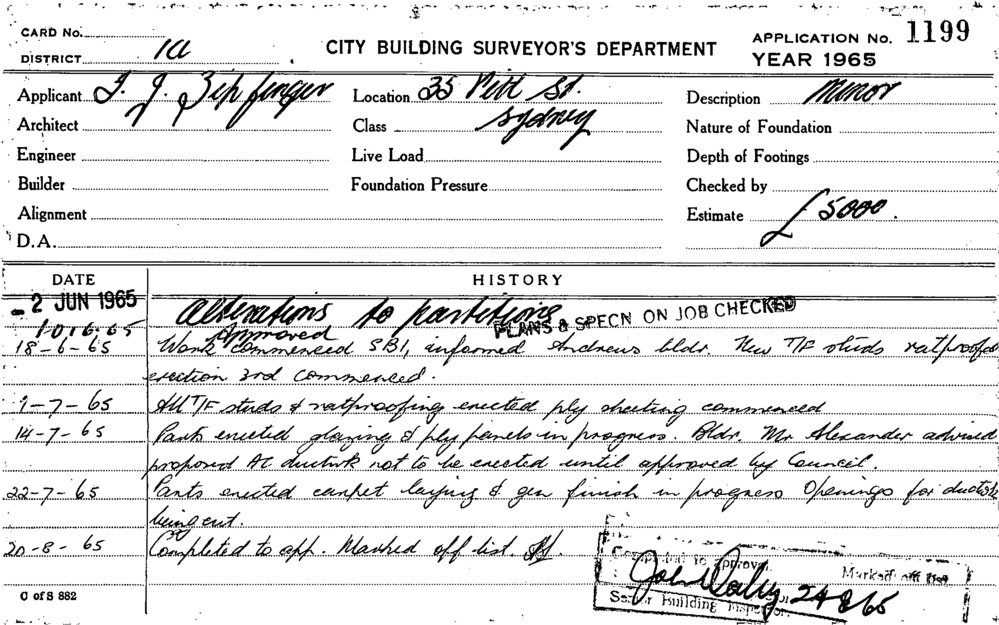 CARD No.
DISTRICT 1a
CITY BUILDING SURVEYOR'S DEPARTMENT
APPLICATION No. 1199
YEAR 1965
Applicant J. J. Zipfinger
Location 35 Pitt St.
Sydney
Description Minor
Architect
Class
Nature of Foundation
Engineer
Live Load
Depth of Footings
Builder
Foundation Pressure
Checked by
Alignment
Estimate £5000.
D.A.
DATE HISTORY
- 2 JUN 1965 Alterations to partitions
PLANS & SPECN ON JOB CHECKED
10.6.65 Approved
18-6-65 Work commenced SBI, informed Andrews bldr. New T/F studs ratproofed
erection 3rd commenced.
1-7-65 All T/F studs & ratproofing erected ply sheeting commenced
14-7-65 Parts erected glazing & ply panels in progress. Bldr. Mr Alexander advised
proposed AC ductwk not to be erected until approved by Council.
22-7-65 Parts erected carpet laying & gen finish in progress Openings for ductwk
being cut.
20-8-65 Completed to app. Marked off list.
Completed to approval Marked off list
John Daly 24 8 65
Senior Building Inspector.
C of S 882